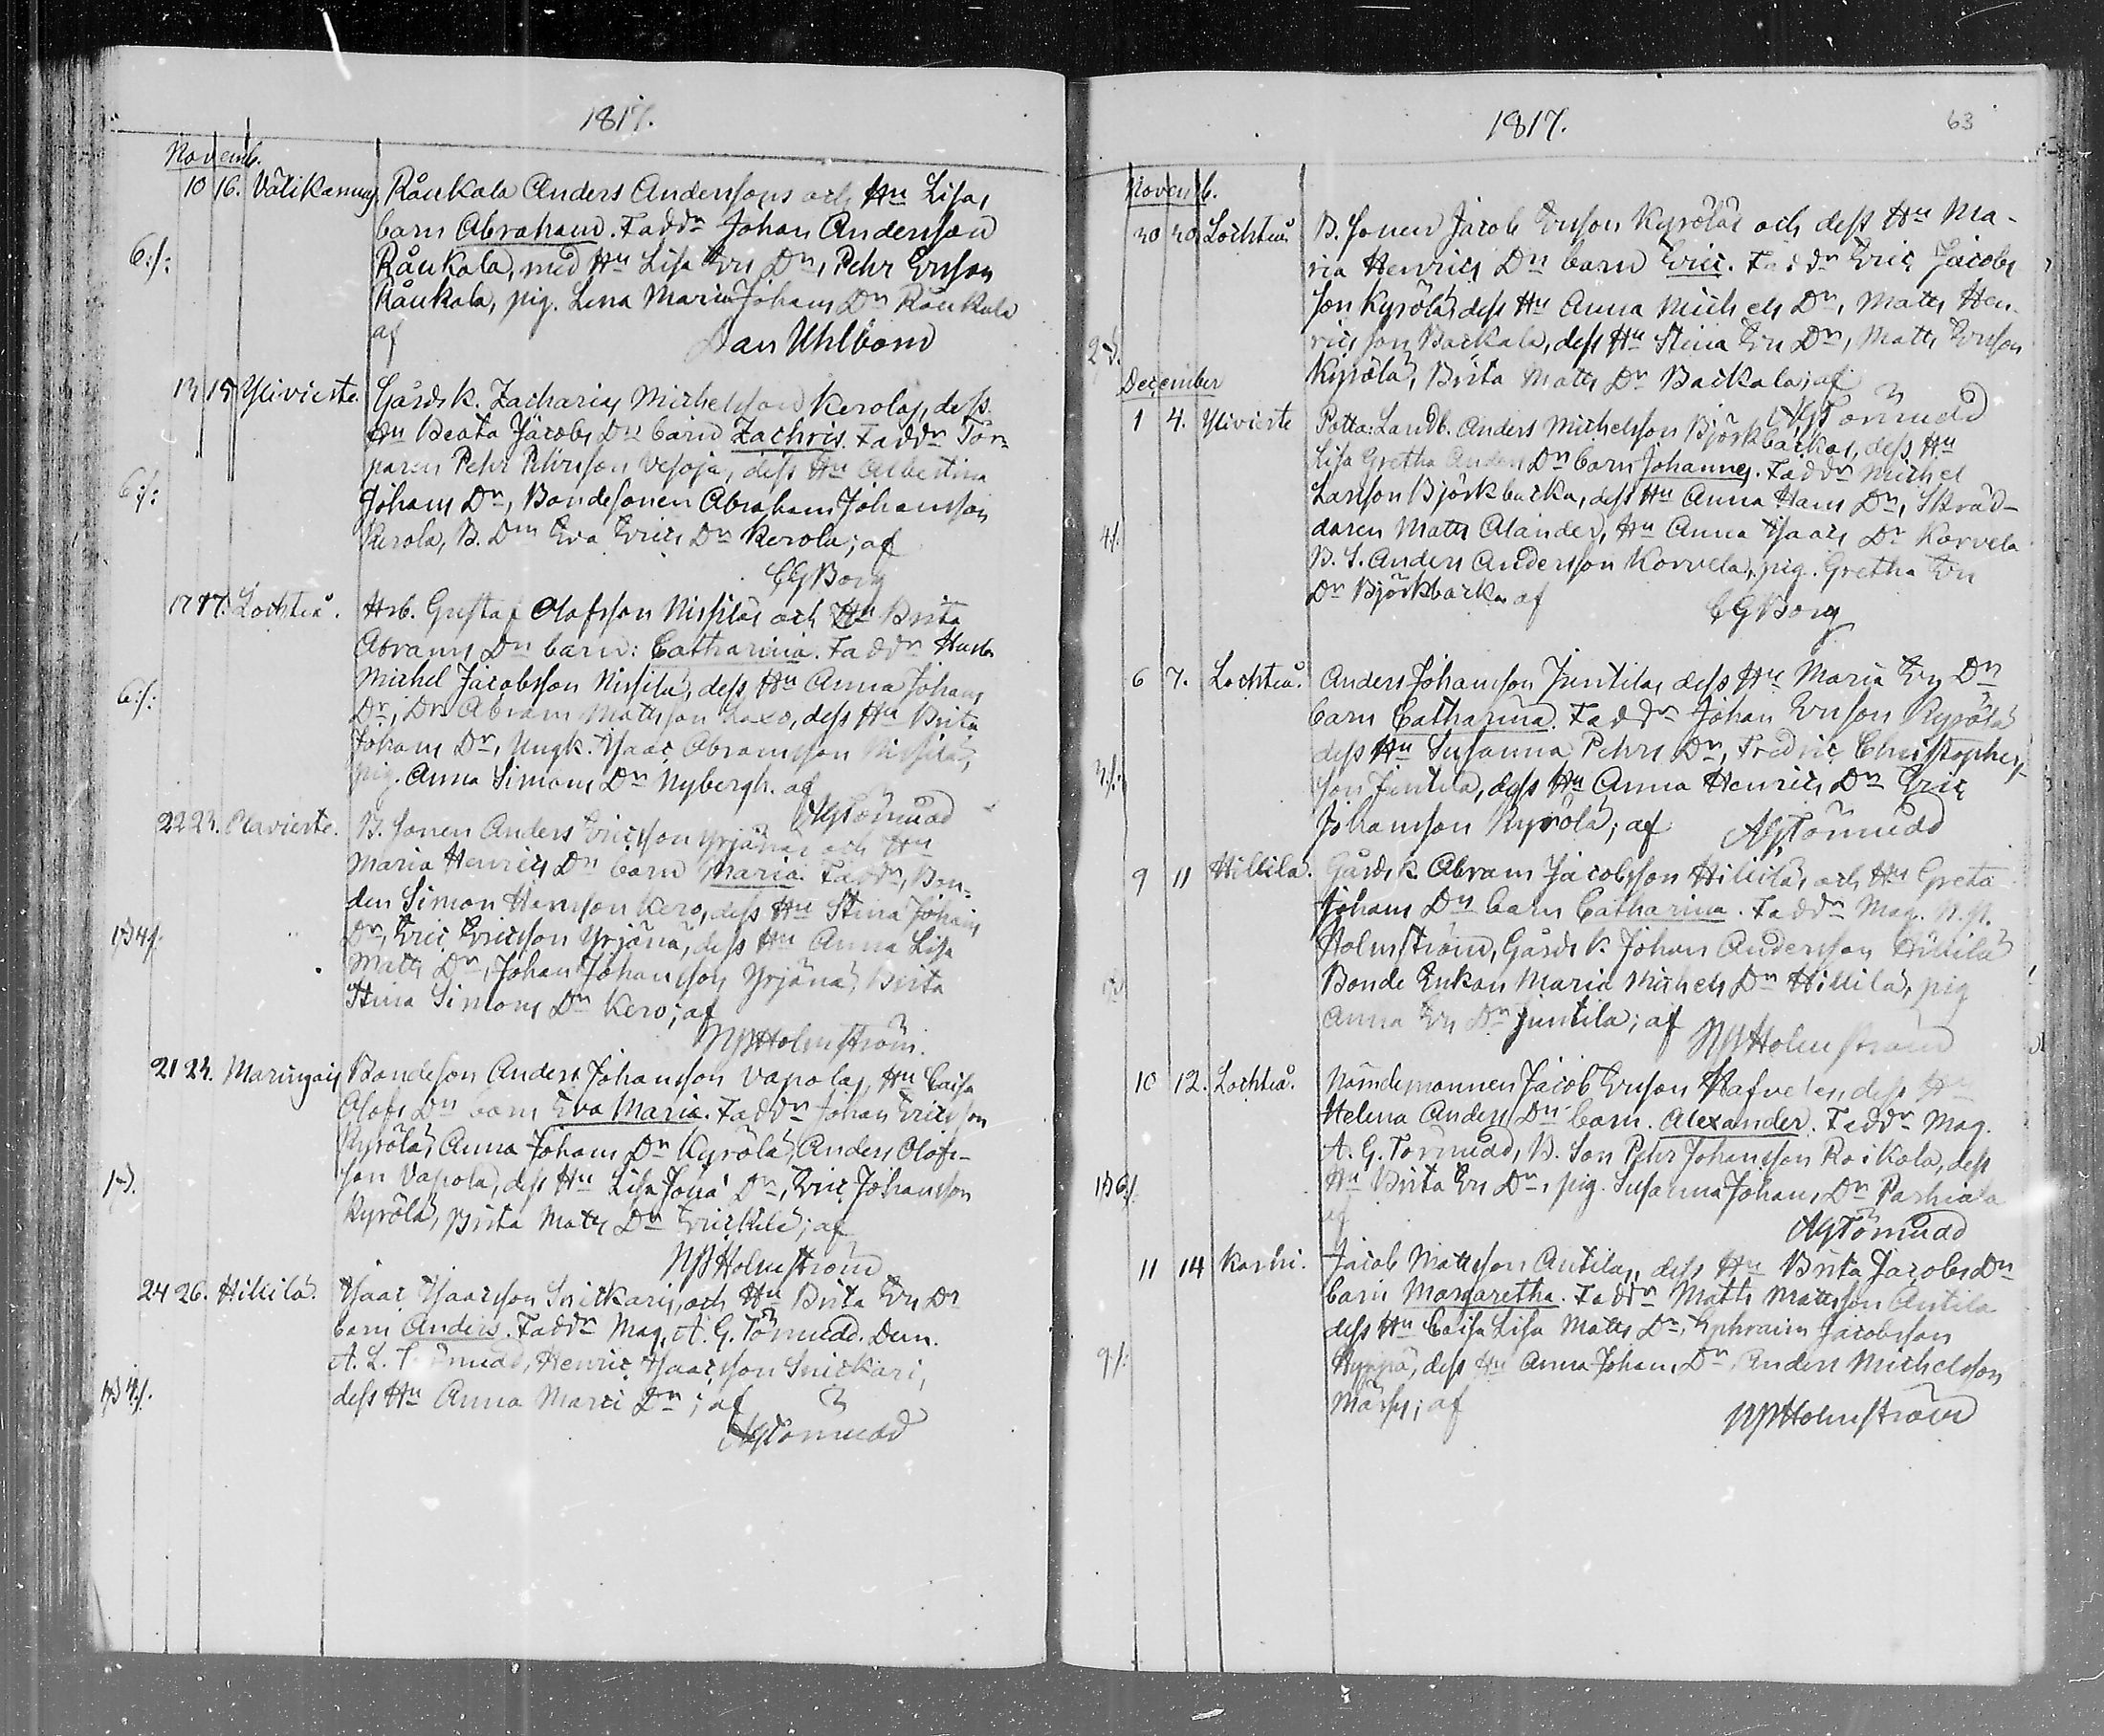 1817.
Novemb.
10 16. Välikannus Råukala Anders Anderssons och Hu Lisas
barn Abraham. Faddr Johan Andersson
6:/: Råukala, med Hu Lisa Ers Dr, Pehr Ersson
Råukala, pig. Lena Maria Johans Dr Råukala
af Dan Uhlbom
13 15 Ylivieste. Gårdsk. Zacharias Michelsson Kerolas, dess
Hu Beata Jacobs Drs barn Zachris. Faddr Tor-
paren Pehr Pehrsson Vesoja, dess Hu Albertina
6:/: Johans Dr, Bondesonen Abraham Johansson
Kerola, B. Drn Eva Erics Dr Kerola; af
CGBorg
17 17. Lochteå. Hsb. Gustaf Olofsson Nissilas och Hu Brita
Abrams Drs barn: Catharina. Faddr Husb.
6:/: Michel Jacobsson Nissilä, dess Hu Anna Johans
Dr, Dr. Abram Mattsson Laxo, dess Hu Brita
Johans Dr, Ungk. Isaac Abramsson Nissilä,
pig. Anna Simons Dr Nybergh. af
AGTörnudd
22 23. Plavieste. B. Sonen Anders Ericsson Yrjänäs och Hu
Maria Henrics Drs barn Maria. Faddr, Bon-
den Simon Hansson Kero, dess Hu Stina Johans
Dr, Eric Ericsson Yrjänä, dess Hu Anna Lisa
Matts Dr, Johan Johansson Yrjänä, Brita
Stina Simons Dr Kero; af
NPHolmström.
21 23. Maringais Bondeson Anders Johansson Vapolas, Hu Caisa
Olofs Drs barn Eva Maria. Faddr Johan Ericsson
Kyrölä, Anna Johans Dr Kyrölä, Anders Olofs-
son Vapola, dess Hu Lisa Jona Dr, Eric Johansson
Kyrölä, Brita Matts Dr Erickilä; af
NPHolmström
24 26. Hillilä. Isaac Isaacson Snickaris, och Hu Brita Ers Dr
barn Anders. Faddr Mag. A. G. Törnudd. Dem.
A. L. Törnudd, Henric Isaacsson Snickari,
dess Hu Anna Marci Dr; af
AGTörnudd
1817. 63
Novemb.
30 30 Lochteå B. Sonen Jacob Ersson Kyröläs och dess Hu Ma-
ria Henrics Drs barn Eric. Faddr Eric Jacobs
son Kyrölä, dess Hu Anna Michels Dr, Matts Hen-
rics son Backala, dess Hu Stina Ers Dr, Matts Ersson
Kyrölä, Brita Matts Dr Backala; af
December AGTörnudd
1 4. Ylivieste Potta: Landb. Anders Michelsson Björkbackas, dess Hu
Lisa Gretha Anders Drs barn Johannes. Faddr Michel
Larsson Björkbacka, dess Hu Anna Hans Dr, Skräd-
4/. daren Matts Alander, Hu Anna Isaacs Dr Korvela
B. S. Anders Andersson Korvela, pig. Gretha Ers
Dr Björkbacka af CGBorg
6 7. Lochteå. Anders Johansson Juntilas dess Hu Maria Ers Drs
barn Catharina. Faddr Johan Ersson Kyrölä
dess Hu Susanna Pehrs Dr, Fredric Christophers-
son Juntila, dess Hu Anna Henrics Dr Eric
Johansson Kyrölä; af AGTörnudd
9 11 Hillila. Gårdsk Abram Jacobsson Hilliläs och Hu Greta
Johans Drs barn Catharina. Faddr Mag. N. P.
Holmström, Gårdsk. Johan Andersson Hillilä
Bonde Enkan Maria Michels Dr Hillilä, pig
Anna Ers Dr Juntila; af NPHolmström
10 12. Lochteå. Nämdemannen Jacob Ersson Hafvelas, dess Hu
Helena Anders Drs barn. Alexander. Faddr Mag.
A. G. Törnudd, B. Son Pehr Johansson Roikola, dess
Hu Brita Ers Dr, pig. Susanna Johans Dr Pashiala
af AGTörnudd
11 14 Karhi. Jacob Mattsson Antilas, dess Hu Brita Jacobs Drs
barn Margaretha. Faddr Matts Mattsson Antila
dess Hu Caisa Lisa Matts Dr, Ephraim Jacobsson
9/: dess Hu Anna Johans Dr Anders Michelsson
Märsy; af NPHolmström